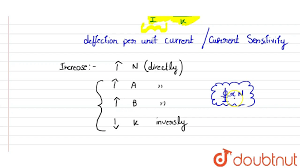 I K
deflection per unit current / Current Sensitivity
Increase:- ↑ N (directly)
↑ A "
↑ B "
↓ K inversly
I/θ ∝ N
doubtnut